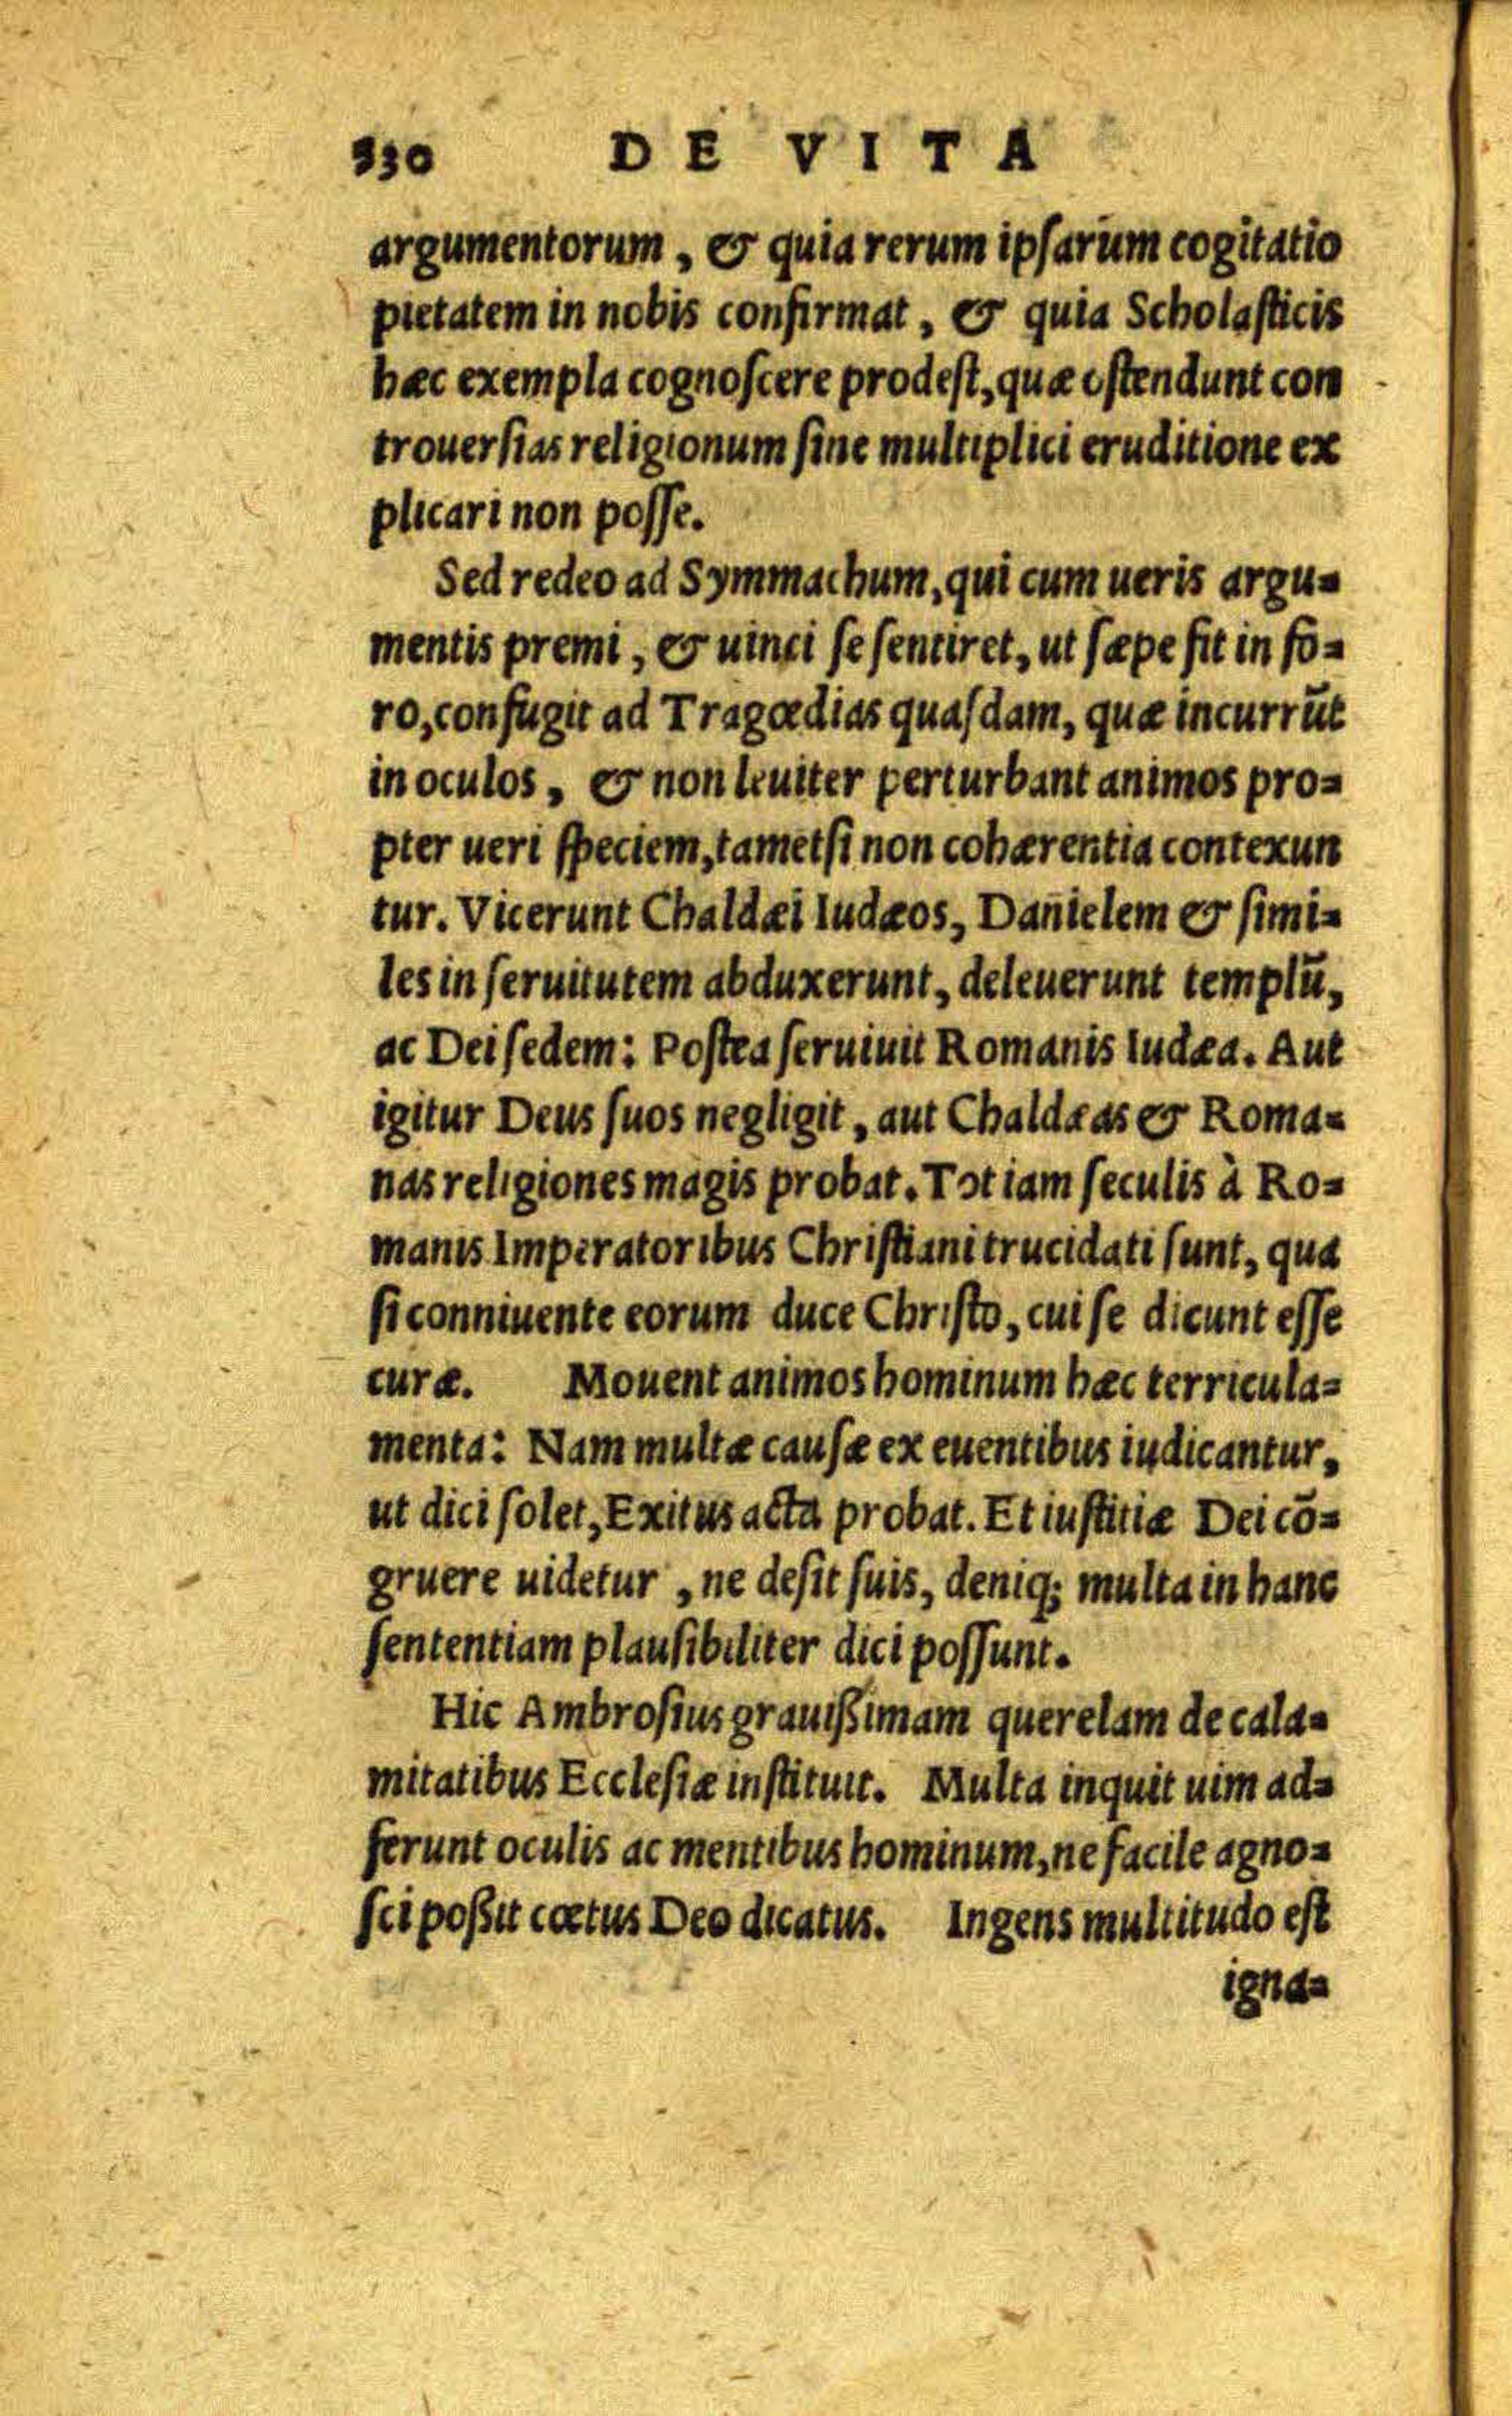 530 DE VITA
argumentorum, & quia rerum ipsarum cogitatio
pietatem in nobis confirmat, & quia Scholasticis
hæc exempla cognoscere prodest, quæ ostendunt con
trouersias religionum sine multiplici eruditione ex
plicari non posse.
Sed redeo ad Symmachum, qui cum ueris argu-
mentis premi, & uinci se sentiret, ut sæpe fit in fo-
ro, confugit ad Tragœdias quasdam, quæ incurrūt
in oculos, & non leuiter perturbant animos pro-
pter ueri speciem, tametsi non cohærentia contexun
tur. Vicerunt Chaldæi Iudæos, Danielem & simi-
les in seruitutem abduxerunt, deleuerunt templū,
ac Dei sedem: Postea seruiuit Romanis Iudæa. Aut
igitur Deus suos negligit, aut Chaldæas & Roma-
nas religiones magis probat. Tot iam seculis à Ro-
manis Imperatoribus Christiani trucidati sunt, qua
si conniuente eorum duce Christo, cui se dicunt esse
curæ. Mouent animos hominum hæc terricula-
menta: Nam multæ causæ ex euentibus iudicantur,
ut dici solet, Exitus acta probat. Et iustitiæ Dei cō-
gruere uidetur, ne desit suis, deniq; multa in hanc
sententiam plausibiliter dici possunt.
Hic Ambrosius grauißimam querelam de cala-
mitatibus Ecclesiæ instituit. Multa inquit uim ad-
ferunt oculis ac mentibus hominum, ne facile agno-
sci poßit cœtus Deo dicatus. Ingens multitudo est
igna-